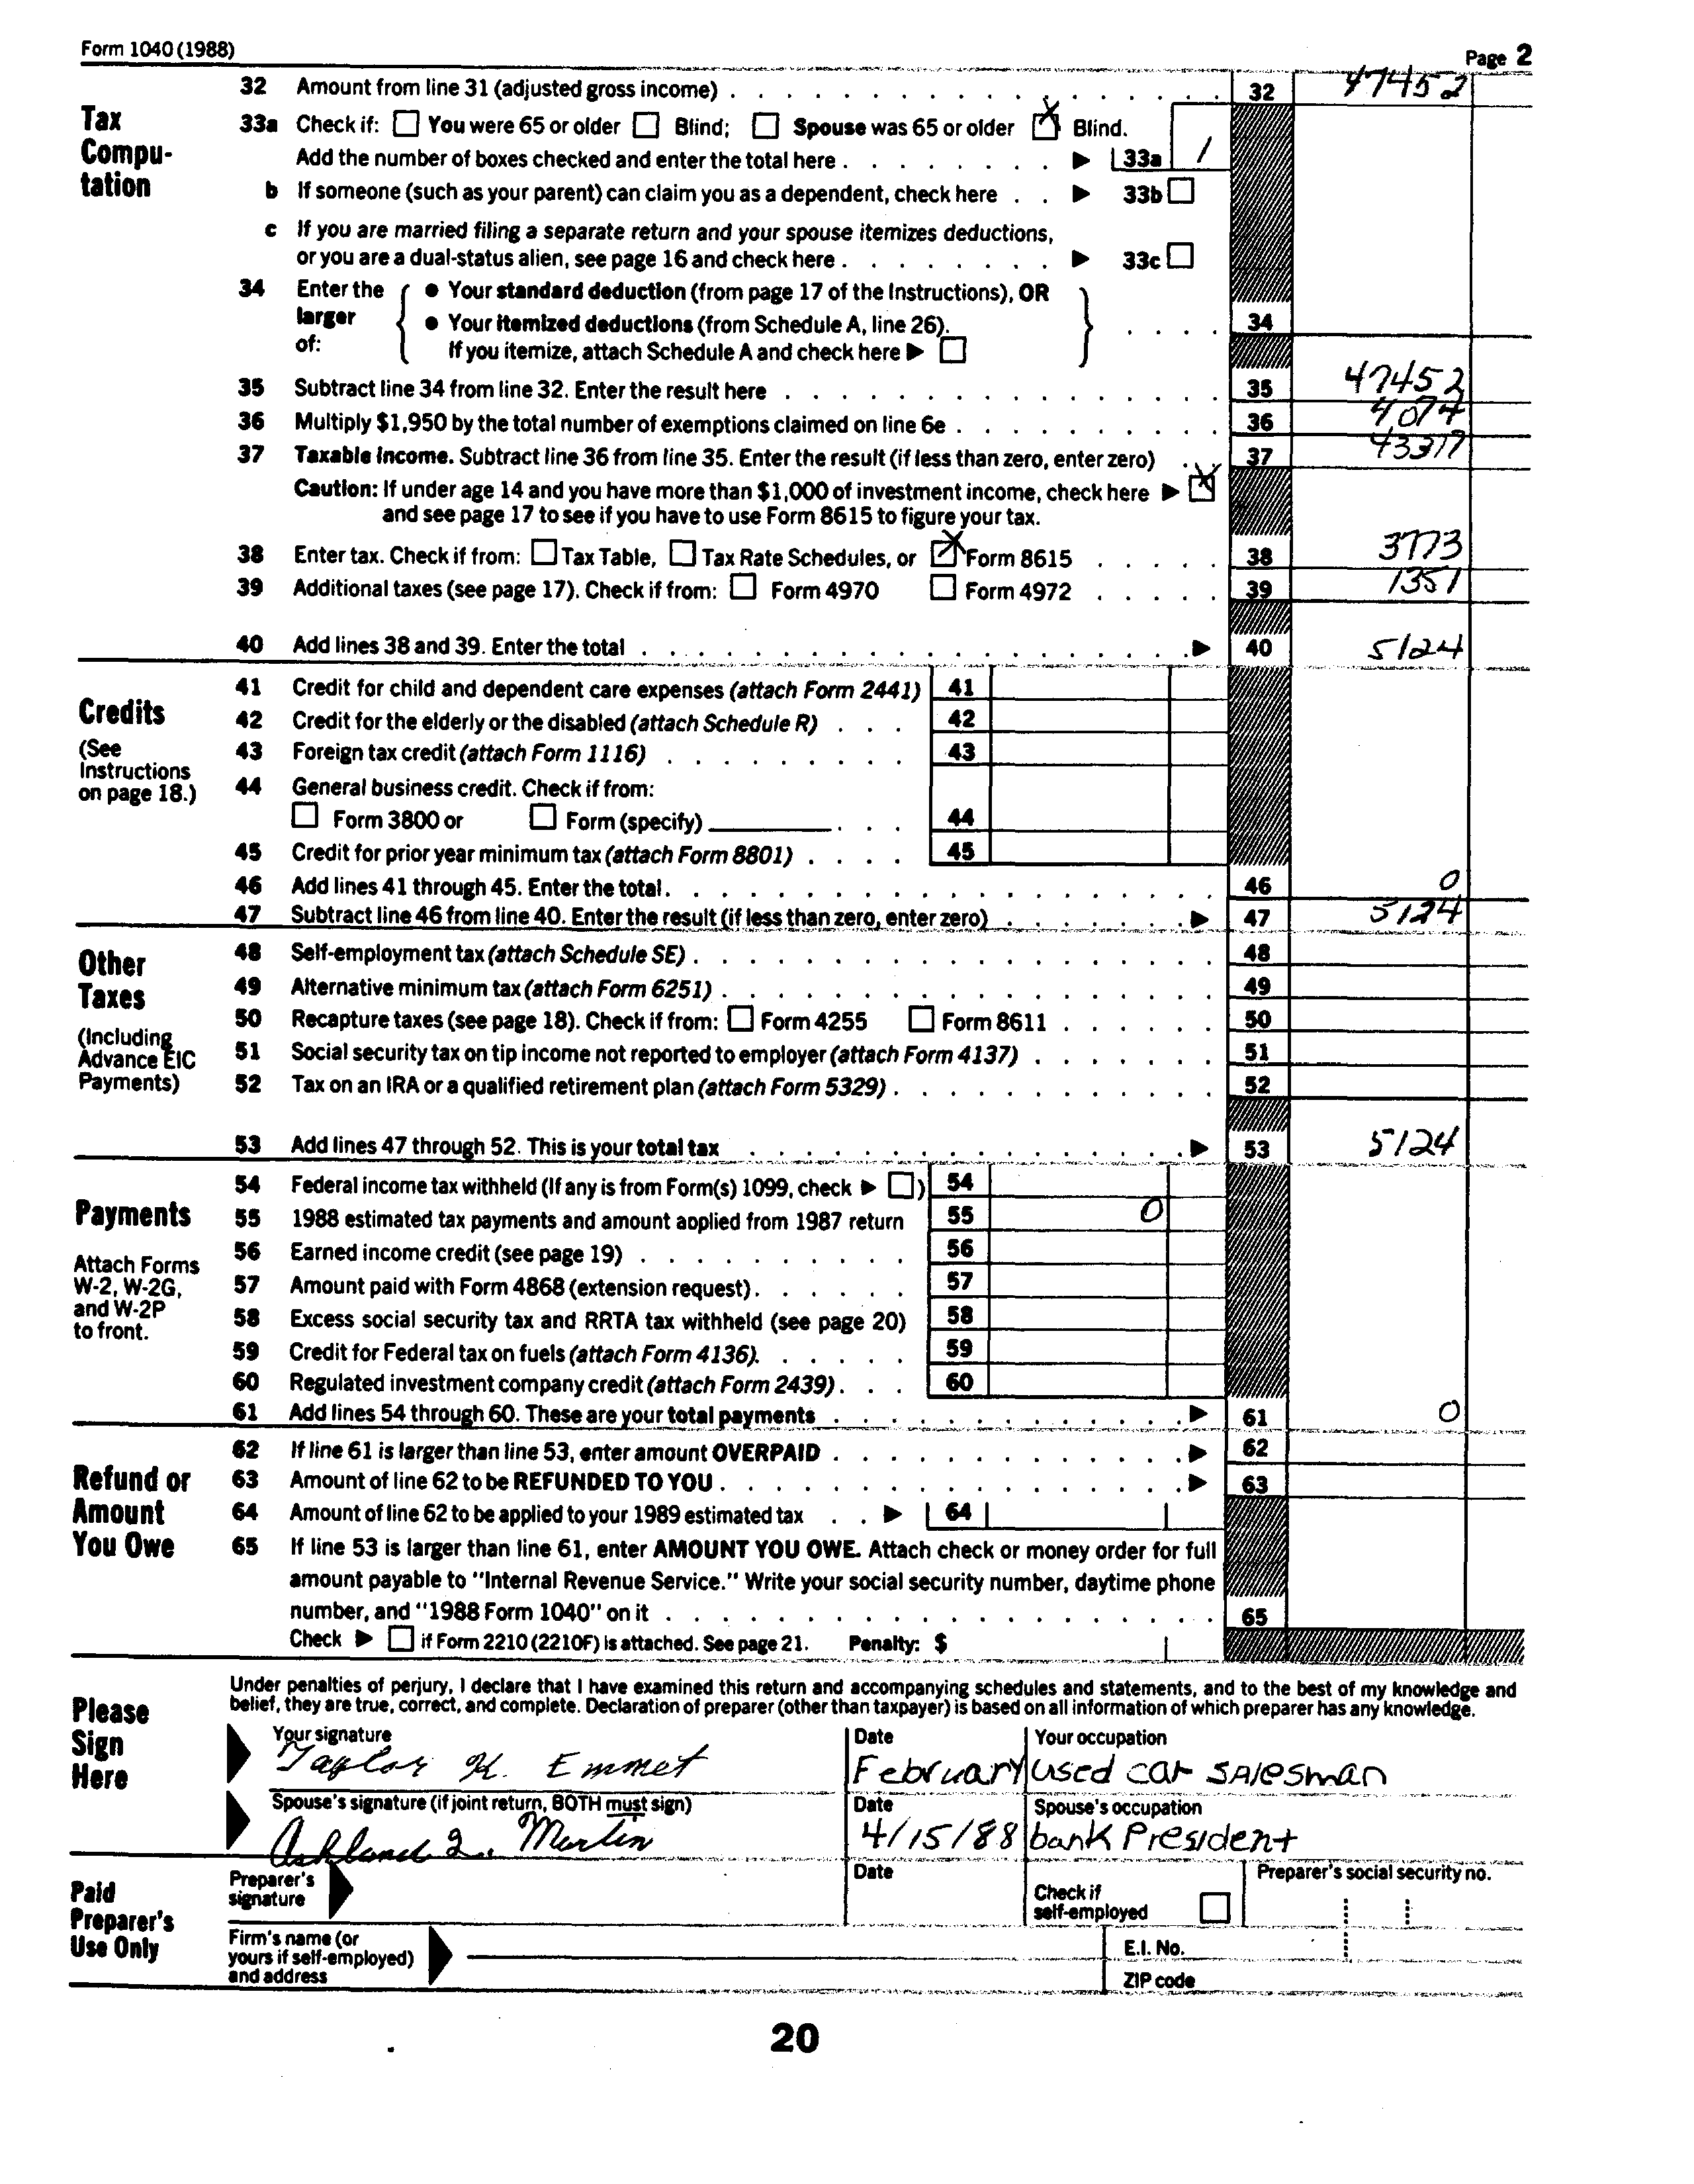 Form 1040 (1988)
Page 2
Tax Compu-tation
32 Amount from line 31 (adjusted gross income) . . . 32 47452
33a Check if: ☐ You were 65 or older ☐ Blind; ☐ Spouse was 65 or older ☒ Blind.
Add the number of boxes checked and enter the total here . . . ▶ 33a 1
b If someone (such as your parent) can claim you as a dependent, check here . . ▶ 33b ☐
c If you are married filing a separate return and your spouse itemizes deductions,
or you are a dual-status alien, see page 16 and check here . . . ▶ 33c ☐
34 Enter the larger of: ● Your standard deduction (from page 17 of the Instructions), OR
● Your itemized deductions (from Schedule A, line 26).
If you itemize, attach Schedule A and check here ▶ ☐ . . . 34
35 Subtract line 34 from line 32. Enter the result here . . . 35 47452
36 Multiply $1,950 by the total number of exemptions claimed on line 6e . . . 36 4074
37 Taxable income. Subtract line 36 from line 35. Enter the result (if less than zero, enter zero) . . 37 43377
Caution: If under age 14 and you have more than $1,000 of investment income, check here ▶ ☒
and see page 17 to see if you have to use Form 8615 to figure your tax.
38 Enter tax. Check if from: ☐ Tax Table, ☐ Tax Rate Schedules, or ☒ Form 8615 . . . 38 3773
39 Additional taxes (see page 17). Check if from: ☐ Form 4970 ☐ Form 4972 . . . 39 1351
40 Add lines 38 and 39. Enter the total . . . ▶ 40 5124
Credits
(See Instructions on page 18.)
41 Credit for child and dependent care expenses (attach Form 2441) 41
42 Credit for the elderly or the disabled (attach Schedule R) . . . 42
43 Foreign tax credit (attach Form 1116) . . . 43
44 General business credit. Check if from:
☐ Form 3800 or ☐ Form (specify) . . . 44
45 Credit for prior year minimum tax (attach Form 8801) . . . 45
46 Add lines 41 through 45. Enter the total . . . 46 0
47 Subtract line 46 from line 40. Enter the result (if less than zero, enter zero) . . . ▶ 47 5124
Other Taxes
(Including Advance EIC Payments)
48 Self-employment tax (attach Schedule SE) . . . 48
49 Alternative minimum tax (attach Form 6251) . . . 49
50 Recapture taxes (see page 18). Check if from: ☐ Form 4255 ☐ Form 8611 . . . 50
51 Social security tax on tip income not reported to employer (attach Form 4137) . . . 51
52 Tax on an IRA or a qualified retirement plan (attach Form 5329) . . . 52
53 Add lines 47 through 52. This is your total tax . . . ▶ 53 5124
Payments
Attach Forms W-2, W-2G, and W-2P to front.
54 Federal income tax withheld (If any is from Form(s) 1099, check ▶ ☐) 54
55 1988 estimated tax payments and amount applied from 1987 return 55 0
56 Earned income credit (see page 19) . . . 56
57 Amount paid with Form 4868 (extension request) . . . 57
58 Excess social security tax and RRTA tax withheld (see page 20) 58
59 Credit for Federal tax on fuels (attach Form 4136). . . . 59
60 Regulated investment company credit (attach Form 2439) . . . 60
61 Add lines 54 through 60. These are your total payments . . . ▶ 61 0
Refund or Amount You Owe
62 If line 61 is larger than line 53, enter amount OVERPAID . . . ▶ 62
63 Amount of line 62 to be REFUNDED TO YOU . . . ▶ 63
64 Amount of line 62 to be applied to your 1989 estimated tax . . ▶ 64
65 If line 53 is larger than line 61, enter AMOUNT YOU OWE. Attach check or money order for full
amount payable to "Internal Revenue Service." Write your social security number, daytime phone
number, and "1988 Form 1040" on it . . . 65
Check ▶ ☐ if Form 2210 (2210F) is attached. See page 21. Penalty: $
Please Sign Here
Under penalties of perjury, I declare that I have examined this return and accompanying schedules and statements, and to the best of my knowledge and
belief, they are true, correct, and complete. Declaration of preparer (other than taxpayer) is based on all information of which preparer has any knowledge.
Your signature Date Your occupation
Taylor K. Emmet February used car salesman
Spouse's signature (if joint return, BOTH must sign) Date Spouse's occupation
Ashland L. Martin 4/15/88 bank President
Paid Preparer's Use Only
Preparer's signature Date Check if self-employed ☐ Preparer's social security no.
Firm's name (or yours if self-employed) and address E.I. No.
ZIP code
20